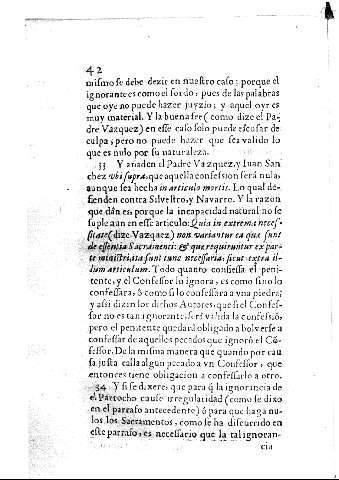 42
mismo se debe dezir en nuestro caso; porque el
ignorante es como el sordo, pues de las palabras
que oye no puede hazer juyzio; y aquel oyr es
muy material. Y la buena fee (como dize el Pa-
dre Vazquez) en esse caso solo puede escusar de
culpa, pero no puede hazer que sea valido lo
que es nulo por su naturaleza.
33 Y añaden el Padre Vazquez, y Iuan San
chez vbi supra, que aquella confession será nula,
aunque sea hecha in articulo mortis. Lo qual de-
fienden contra Silvestro, y Navarro. Y la razon
que dán es, porque la incapacidad natural no se
suple aun en esse articulo: Quia in extrema neces-
sitate (dize Vazquez) non variantur ea que sunt
de essentia Sacramenti: & que requiruntur ex par-
te ministri, ita sunt tunc necessaria, sicut extra il-
lum articulum. Todo quanto confiessa el peni-
tente, y el Confessor lo ignora, es como sino lo
confessara, ó como si lo confessara a vna piedra;
y assi dizen los dichos Autores, que si el Confes-
sor no es tan ignorante, será valida la confessió,
pero el penitente quedará obligado a bolverse a
confessar de aquellos pecados que ignoró el Có-
fessor. De la misma manera que quando por cau
sa justa calla algun pecado a vn Confessor, que
entonces tiene obligacion a confessarlo a otro.
34 Y si se dixere, que para q̃ la ignorancia de
el Parrocho cause irregularidad (como se dixo
en el parrafo antecedente) ó para que haga nu-
los los Sacramentos, como se ha discurrido en
este parrafo, es necessario que la tal ignoran-
cia